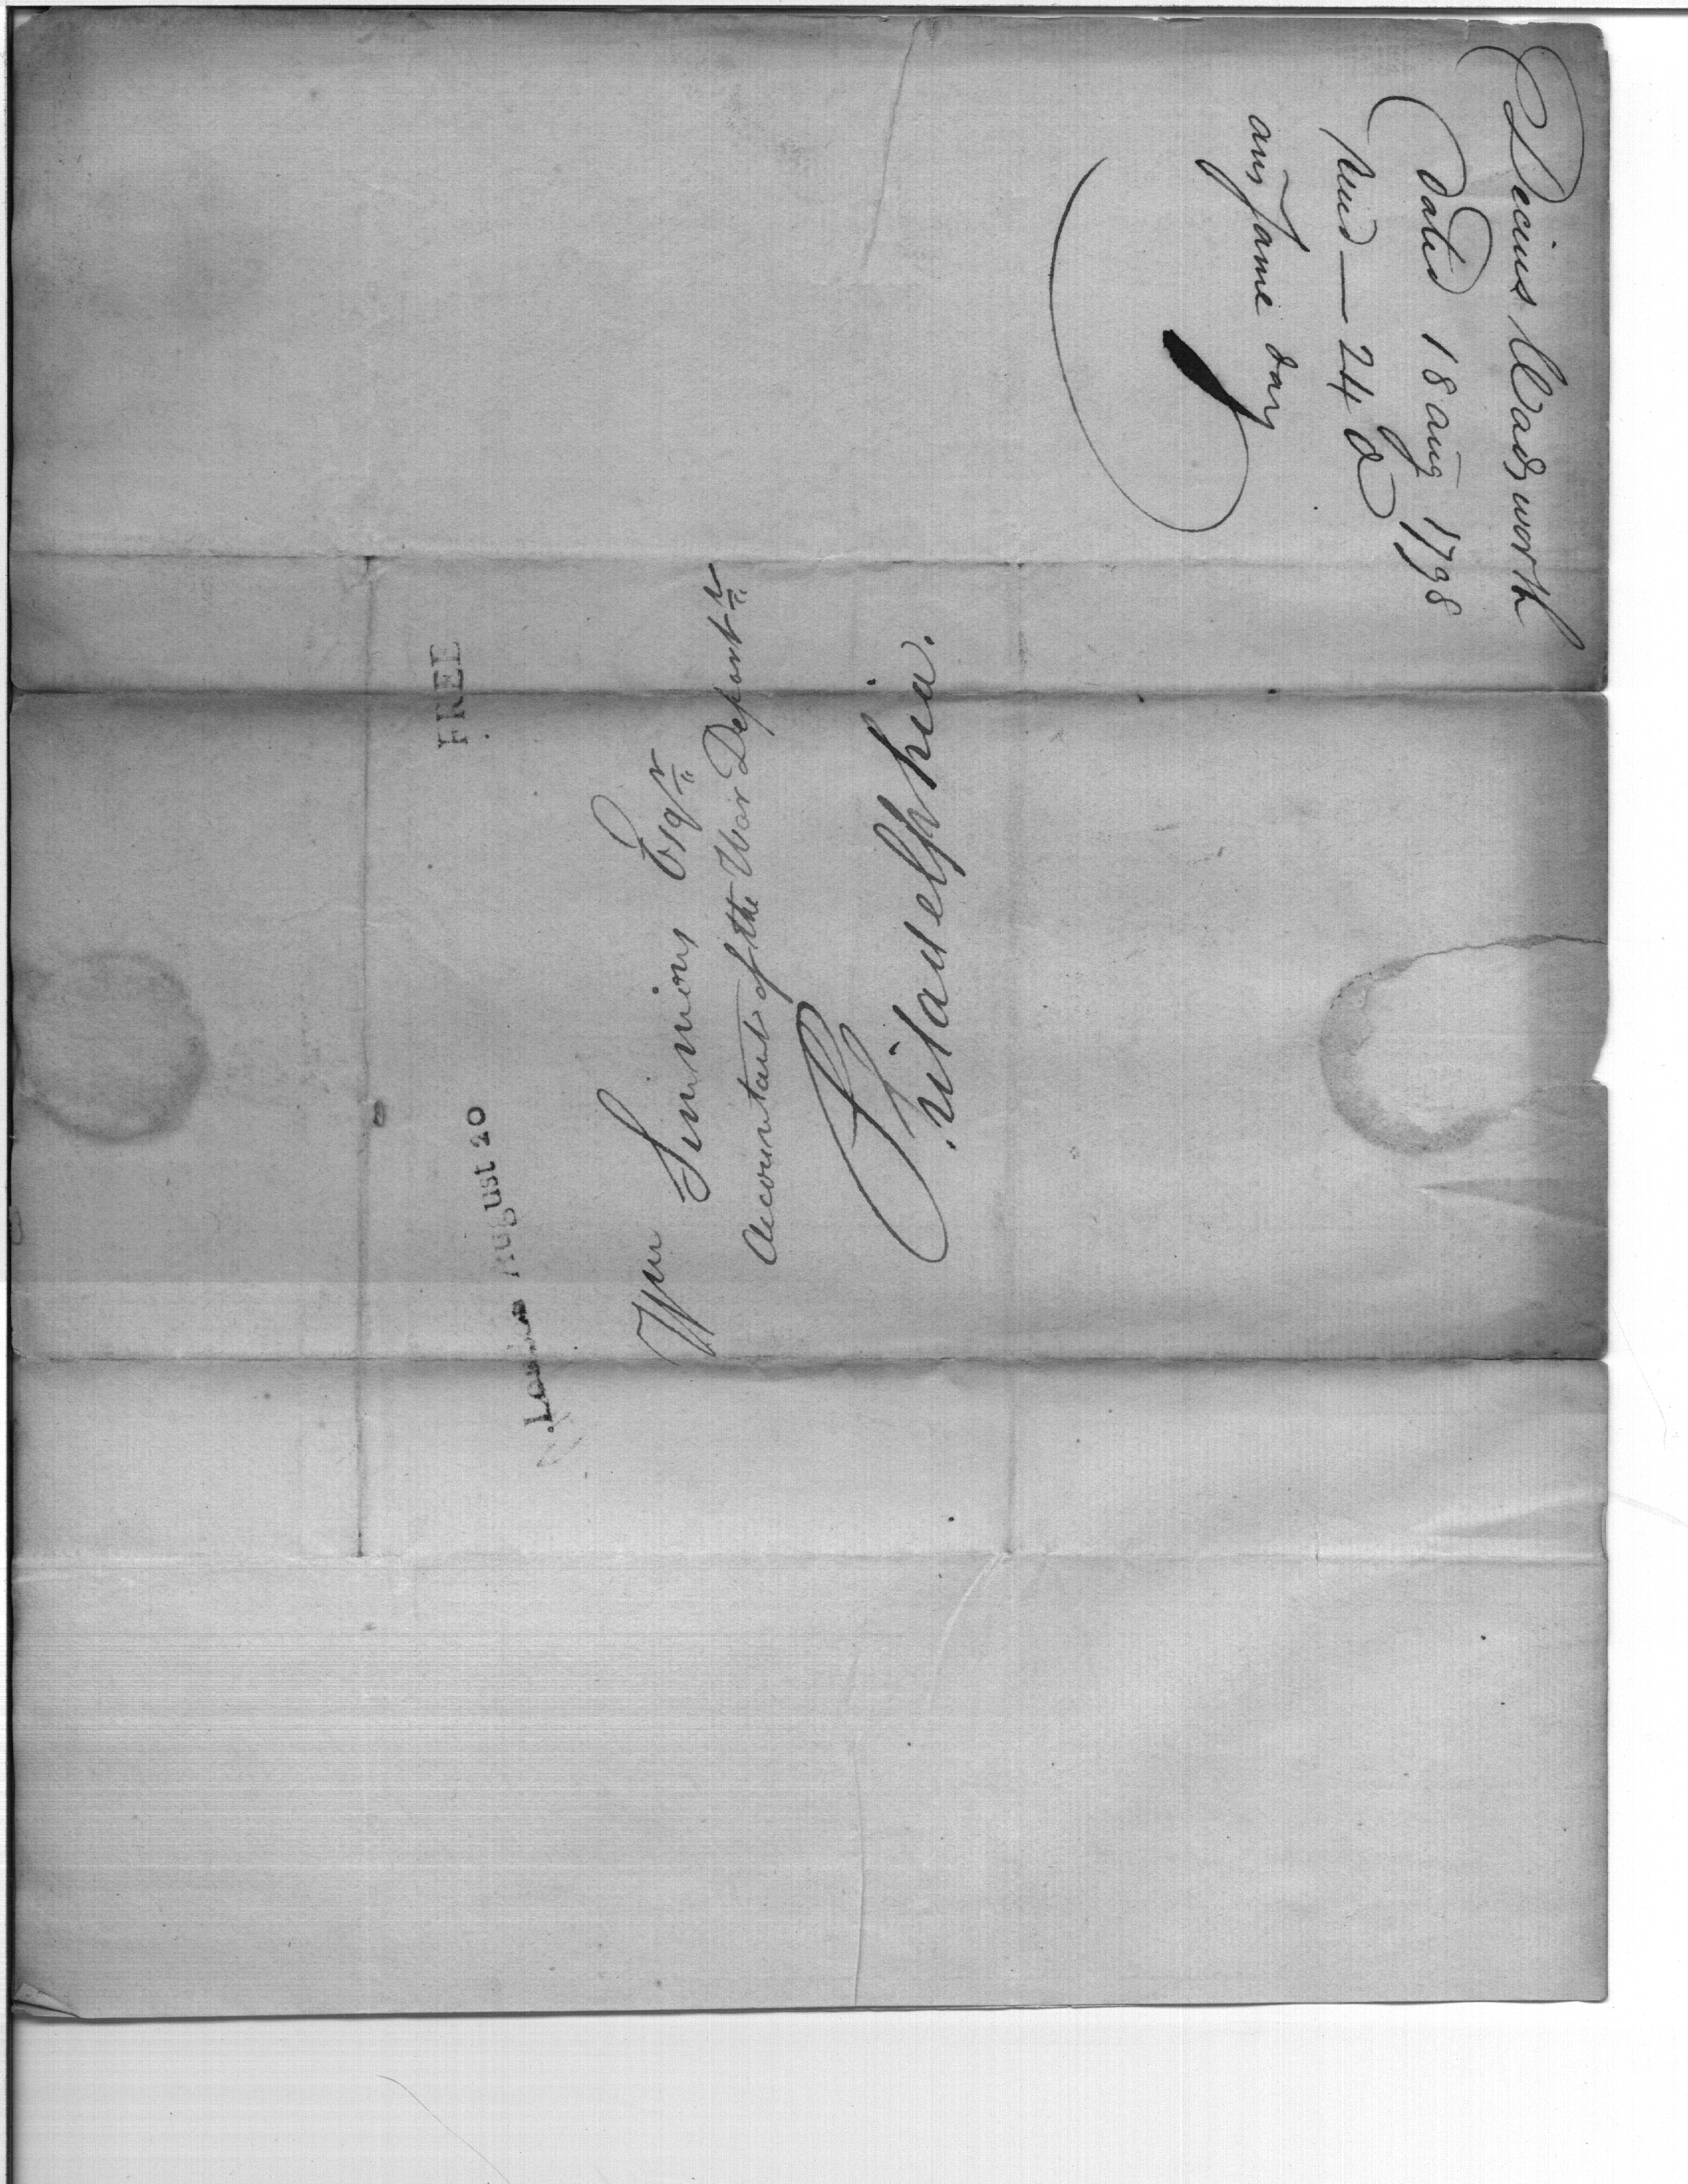 Decius Wadsworth
Dated 18 Aug 1798
Recd — 24 do
ans same day
FREE
August 20
Wm Simmons Esqr
Accountant of the War Departt
Philadelphia.